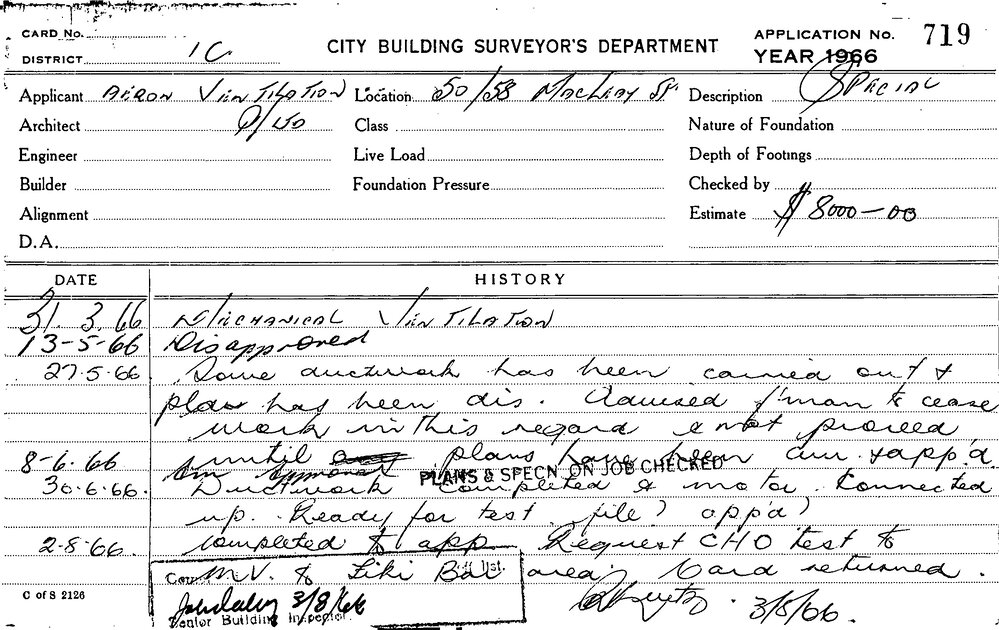 CARD No.
DISTRICT 1C
CITY BUILDING SURVEYOR'S DEPARTMENT
APPLICATION No. 719
YEAR 1966
Applicant AERON VENTILATION P/LTD
Location 50/58 MACLEAY ST.
Description SPECIAL
Architect
Class
Nature of Foundation
Engineer
Live Load
Depth of Footings
Builder
Foundation Pressure
Checked by
Alignment
Estimate $ 8000-00
D.A.
DATE HISTORY
31.3.66 MECHANICAL VENTILATION
13-5-66 Disapproved
27.5.66 Some ductwork has been carried out &
plan has been dis. Advised f'man to cease
work in this regard & not proceed
until plans have been am. & app'd.
8-6.66 Approval
PLANS & SPECN. ON JOB CHECKED
30.6.66. Ductwork completed & motor connected
up. Ready for test file? app'd?
2-8-66. Completed to app Request CHO test to
M.V. to Tiki Bar area; Card returned.
3/8/66.
3/8/66
Senior Building Inspector.
C of S 2126